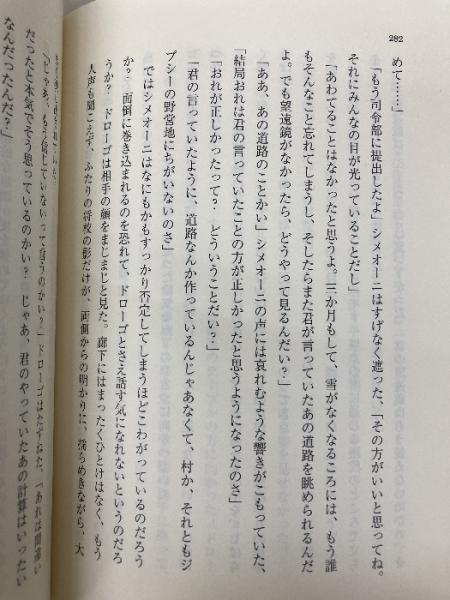 282
めて……」
「もう司令部に提出したよ」シメオーニはすげなく遮った、「その方がいいと思ってね。
それにみんなの目が光っていることだし」
「あわてることはなかったと思うよ。三か月もして、雪がなくなるころには、もう誰
もそんなこと忘れてしまうし、そしたらまた君が言っていたあの道路を眺められるんだ
よ。でも望遠鏡がなかったら、どうやって見るんだい?」
「ああ、あの道路のことかい」シメオーニの声には哀れむような響きがこもっていた、
「結局おれは君の言っていたことの方が正しかったと思うようになったのさ」
「おれが正しかったって? どういうことだい?」
「君の言っていたように、道路なんか作っているんじゃあなくて、村か、それともジ
プシーの野営地にちがいないのさ」
ではシメオーニはなにもかもすっかり否定してしまうほどこわがっているのだろう
か? 面倒に巻き込まれるのを恐れて、ドローゴとさえ話す気になれないというのだろ
うか? ドローゴは相手の顔をまじまじと見た。廊下にはまったくひとけはなく、もう
人声も聞こえず、ふたりの将校の影だけが、両側からの明かりに、揺らめきながら、大
「じゃあ、もう信じていないって言うのかい?」ドローゴはたずねた、「あれは間違い
だったと本気でそう思っているのかい? じゃあ、君のやっていたあの計算はいったい
なんだったんだ?」